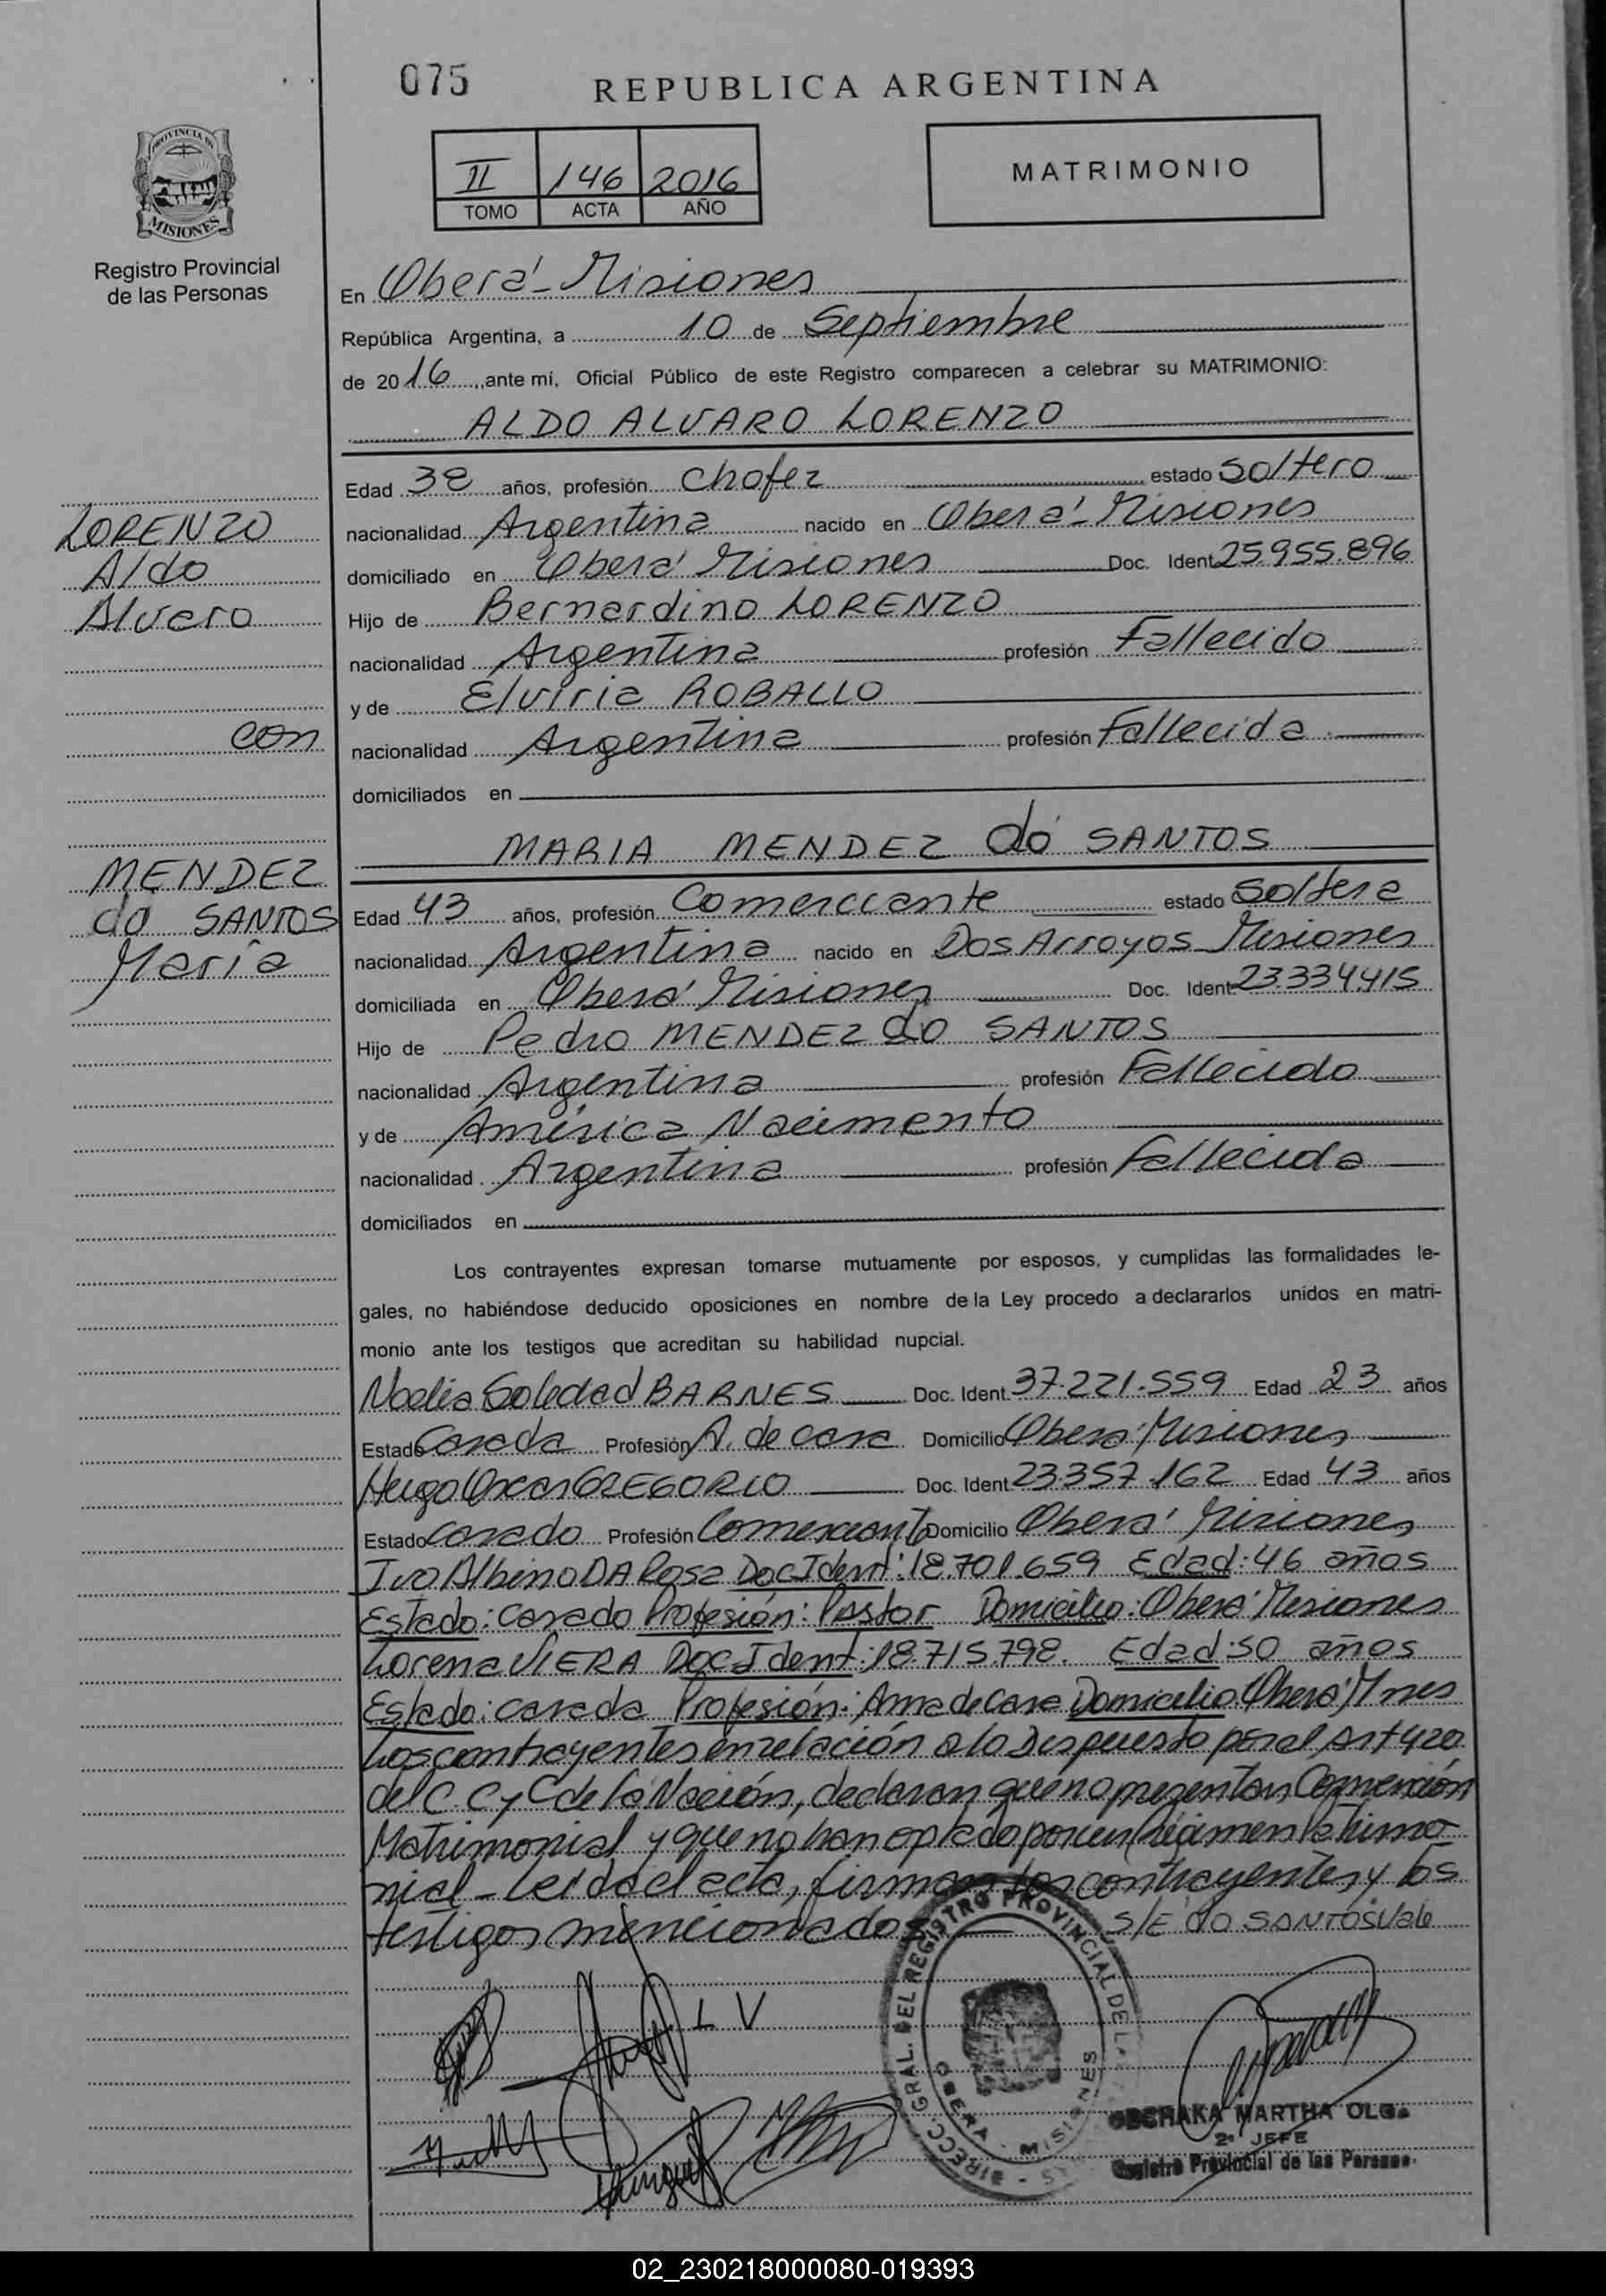 075
REPUBLICA ARGENTINA
PROVINCIA DE
MISIONES
Registro Provincial
de las Personas
II 146 2016
TOMO ACTA AÑO
MATRIMONIO
En Oberá - Misiones
República Argentina, a 10 de Septiembre
de 2016, ante mí, Oficial Público de este Registro comparecen a celebrar su MATRIMONIO:
ALDO ALVARO LORENZO
Edad 38 años, profesión Chofer estado Soltero
nacionalidad Argentina nacido en Oberá - Misiones
domiciliado en Oberá Misiones Doc. Ident. 25.955.896
Hijo de Bernardino LORENZO
nacionalidad Argentina profesión Fallecido
y de Elviria ROBALLO
nacionalidad Argentina profesión Fallecida
domiciliados en
LORENZO
Aldo
Alvaro
con
MENDEZ
dó SANTOS
María
MARIA MENDEZ dó SANTOS
Edad 43 años, profesión Comerciante estado Soltera
nacionalidad Argentina nacido en Dos Arroyos - Misiones
domiciliada en Oberá Misiones Doc. Ident. 23.334.415
Hijo de Pedro MENDEZ dó SANTOS
nacionalidad Argentina profesión Fallecido
y de América Nacimento
nacionalidad Argentina profesión Fallecida
domiciliados en
Los contrayentes expresan tomarse mutuamente por esposos, y cumplidas las formalidades le-
gales, no habiéndose deducido oposiciones en nombre de la Ley procedo a declararlos unidos en matri-
monio ante los testigos que acreditan su habilidad nupcial.
Noelia Soledad BARNES Doc. Ident. 37.221.559 Edad 23 años
Estado Casada Profesión A. de casa Domicilio Oberá Misiones
Hugo Oscar GREGORIO Doc. Ident. 23.357.162 Edad 43 años
Estado Casado Profesión Comerciante Domicilio Oberá Misiones
Ivo Albino DA Rosa Doc Ident: 18.701.659 Edad: 46 años
Estado: casado Profesión: Pastor Domicilio: Oberá Misiones
Lorena VIERA Doc Ident: 18.715.798. Edad: 50 años
Estado: casada Profesión: Ama de Casa Domicilio Oberá Mnes
Los contrayentes en relación a lo Dispuesto por el Art 420
del C. C y C de la Nación, declaran que no presentan Convención
Matrimonial y que no han optado por un Régimen Patrimo-
nial - Leída el acta, firman los contrayentes y los
testigos mencionados S/E dó SANTOS Vale
L V
DIRECC GRAL. DEL REGISTRO PROVINCIAL DE LAS
OBERA - MISIONES
MARTHA OLGA
2° JEFE
Registro Provincial de las Personas
02_230218000080-019393